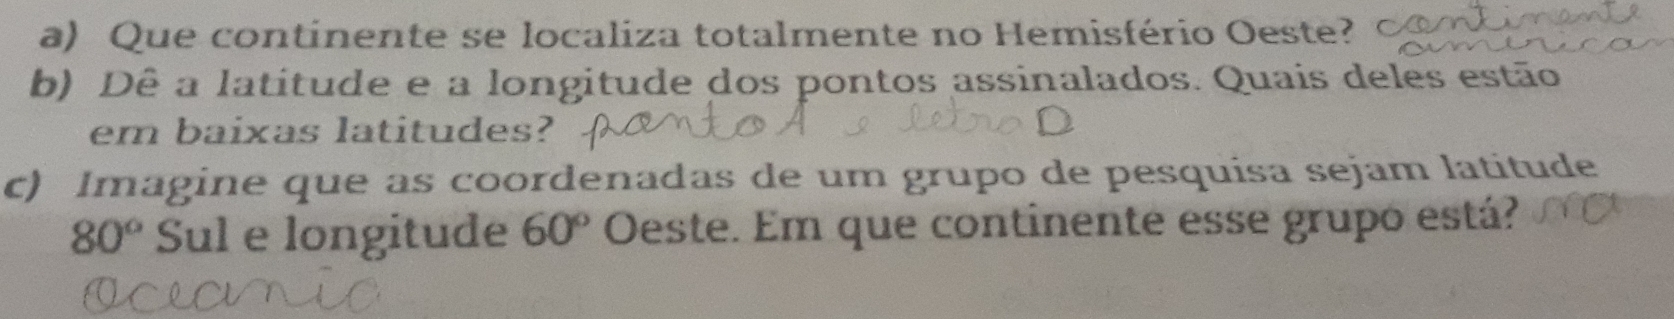 a) Que continente se localiza totalmente no Hemisfério Oeste? continente
american
b) Dê a latitude e a longitude dos pontos assinalados. Quais deles estão
em baixas latitudes? ponto A e letra D
c) Imagine que as coordenadas de um grupo de pesquisa sejam latitude
80º Sul e longitude 60º Oeste. Em que continente esse grupo está? na
oceania